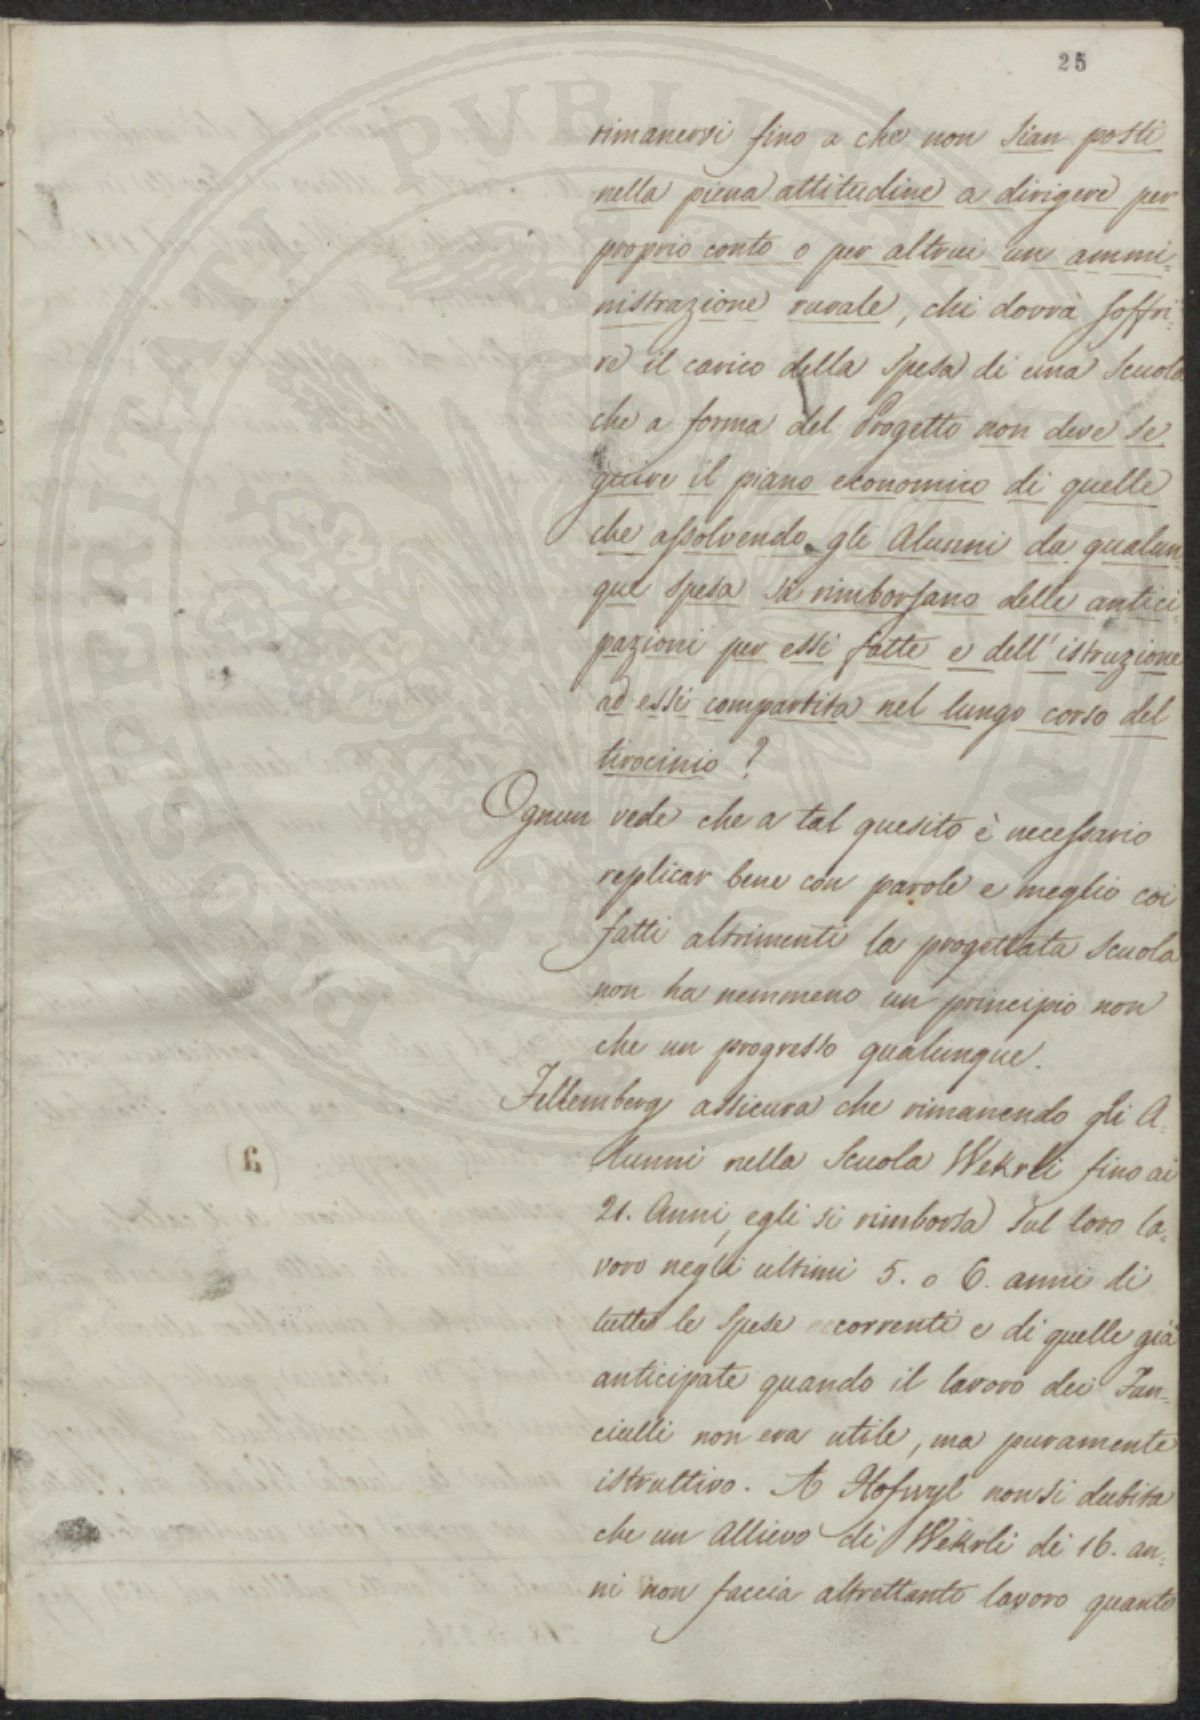 25
rimanervi fino a che non sian posti
nella piena attitudine a dirigere per
proprio conto o per altrui un ammi-
nistrazione rurale, chi dovrà soffri-
re il carico della Spesa di una Scuola
che a forma del Progetto non deve se
guire il piano economico di quelle
che assolvendo gli Alunni da qualun-
que spesa si rimborsano delle antici
pazioni per essi fatte e dell'istruzione
ad essi compartita nel lungo corso del
tirocinio?
Ognun vede che a tal quesito è necessario
replicar bene con parole e meglio coi
fatti altrimenti la progettata Scuola
non ha nemmeno un principio non
che un progresso qualunque.
Fellemberg assicura che rimanendo gli A-
lunni nella Scuola Wekrli fino ai
21. Anni, egli si rimborsa sul loro la-
voro negli ultimi 5. o 6. anni di
tutte le Spese occorrenti e di quelle già
anticipate quando il lavoro dei Fan-
ciulli non era utile, ma puramente
istruttivo. A Hofwyl non si dubita
che un Allievo di Wekrli di 16. an-
ni non faccia altrettanto lavoro quanto
PROSPERITATI PUBLICAE